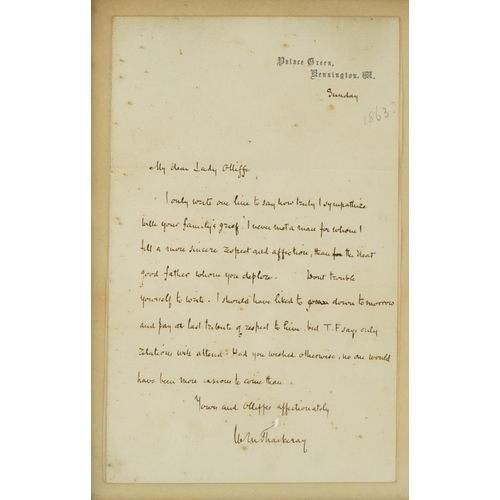 Palace Green,
Kensington. W.
Sunday
1863?
My dear Lady Olliffe
I only write one line to say how truly I sympathize
with your family's grief. I never met a man for whom I
felt a more sincere respect and affection, than for the dear
good father whom you deplore. Dont trouble
yourself to write. I should have liked to down tomorrow
and pay a last tribute of respect to him. but T. F says only
relations will attend. Had you wished otherwise, no one would
have been more anxious to come than
Yours and Olliffes affectionately
W M Thackeray